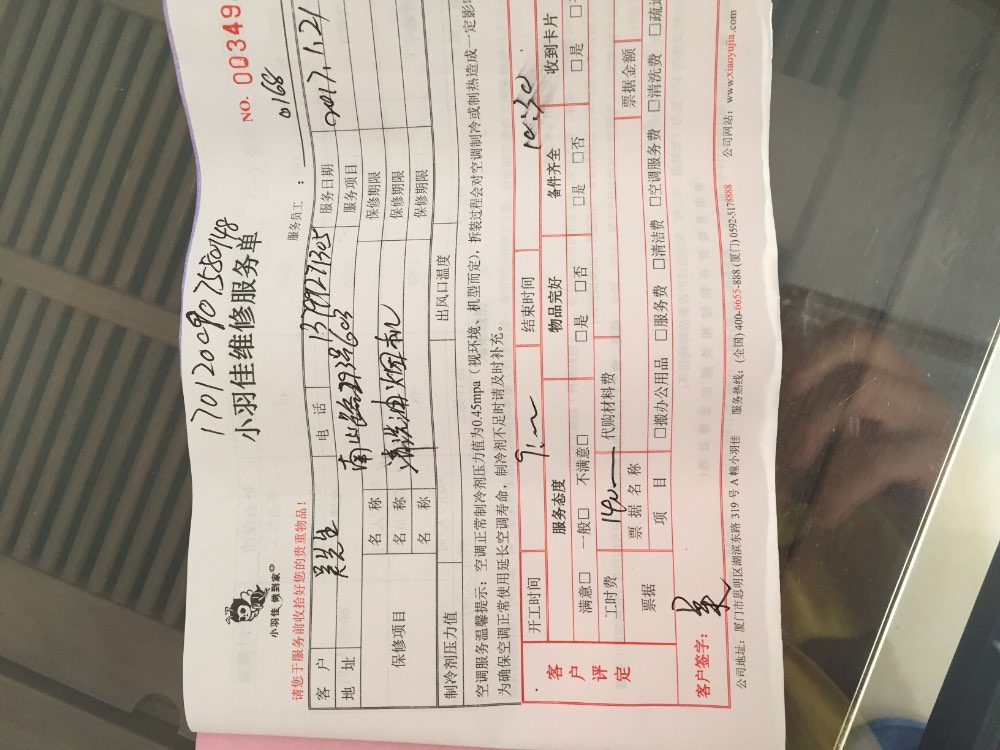 17012090 7580748
小羽佳 做到家
小羽佳维修服务单
NO. 00349
请您于服务前收拾好您的贵重物品!
服务员工: 0168
客户 吴先生 电话 13799271305 服务日期 2017.1.21
地址 南山路293号603 服务项目
保修项目
名称 清洗油烟机 保修期限
名称 保修期限
名称 保修期限
制冷剂压力值 出风口温度
空调服务温馨提示:空调正常制冷剂压力值为0.45mpa(视环境、机型而定),拆装过程会对空调制冷或制热造成一定影
为确保空调正常使用延长空调寿命,制冷剂不足时请及时补充。
客户评定
开工时间 结束时间 10:30
服务态度 物品完好 备件齐全 收到卡片
满意□ 一般□ 不满意□ □是 □否 □是 □否 □是
工时费 代购材料费
票据 票据名称 票据金额
项目 □搬办公用品 □服务费 □清洁费 □空调服务费 □清洗费
客户签字: 吴
公司地址:厦门市思明区湖滨东路 319 号 A 幢小羽佳 服务热线:(全国) 400-6655-888 (厦门) 0592-5178888 公司网站:www.xiaoyujia.com